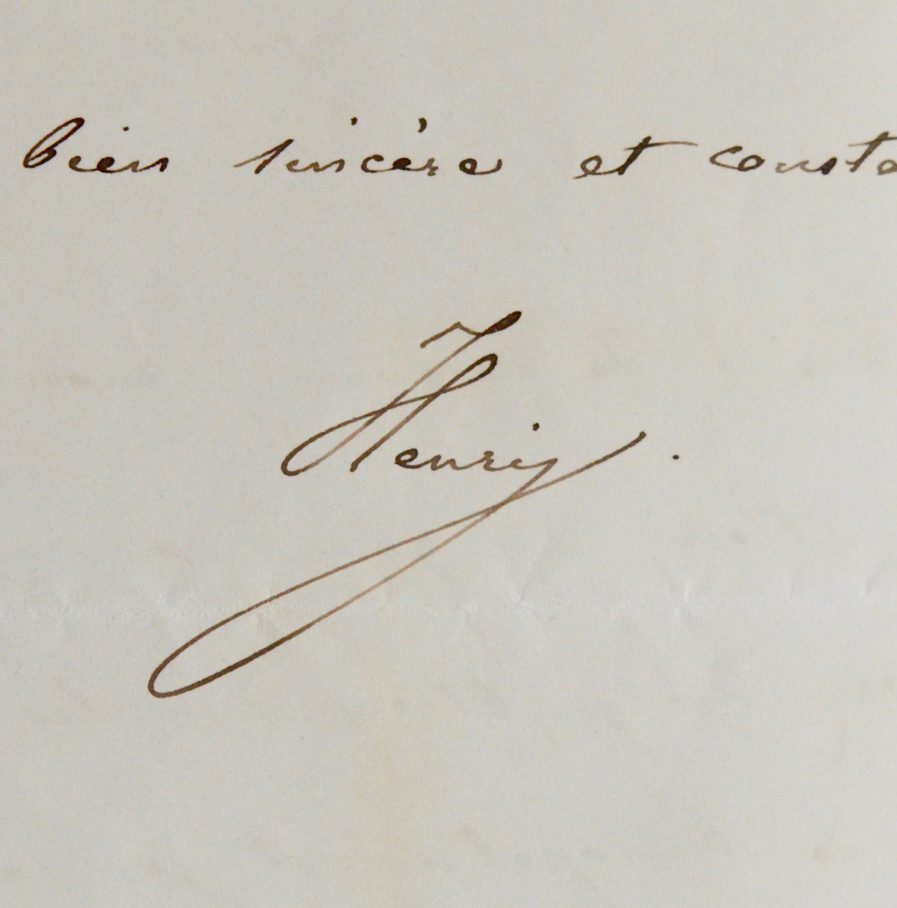 bien sincère et consta
Henry.